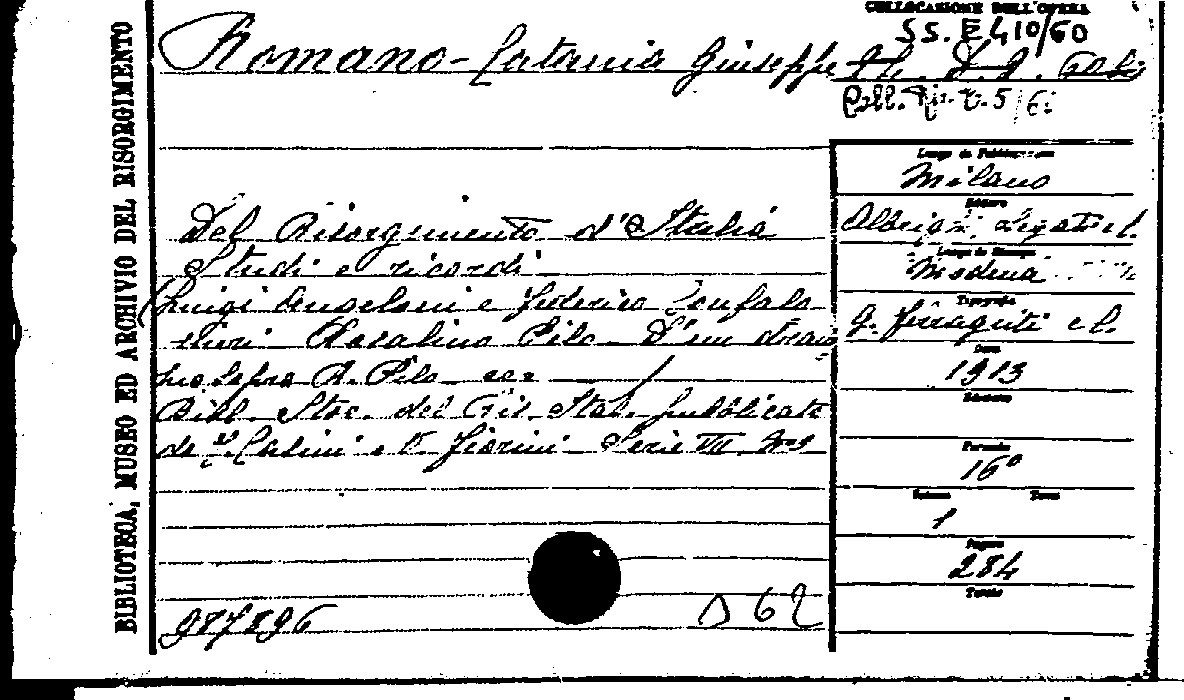 BIBLIOTECA, MUSEO ED ARCHIVIO DEL RISORGIMENTO
COLLOCAZIONE DELL'OPERA
SS. E 410/60
Romano-Catania Giuseppe
Coll.
Luogo di Pubblicazione
Milano
Editore
Albrighi, Segati e C.
Luogo di Stampa
Modena
Tipografia
G. Ferraguti e C.
Data
1913
Edizione
Formato
16º
Volumi
Tomi
1
Pagine
284
Tavole
Del Risorgimento d'Italia
Studi e ricordi
Luigi Angeloni e Federico Confalo
nieri - Rosalino Pilo - D'un dram
ma sopra R. Pilo ecc
Bibl. Stor. del Ris. Ital. pubblicata
da T. Casini e V. Fiorini - Serie VII Nº 9
987896
D 62